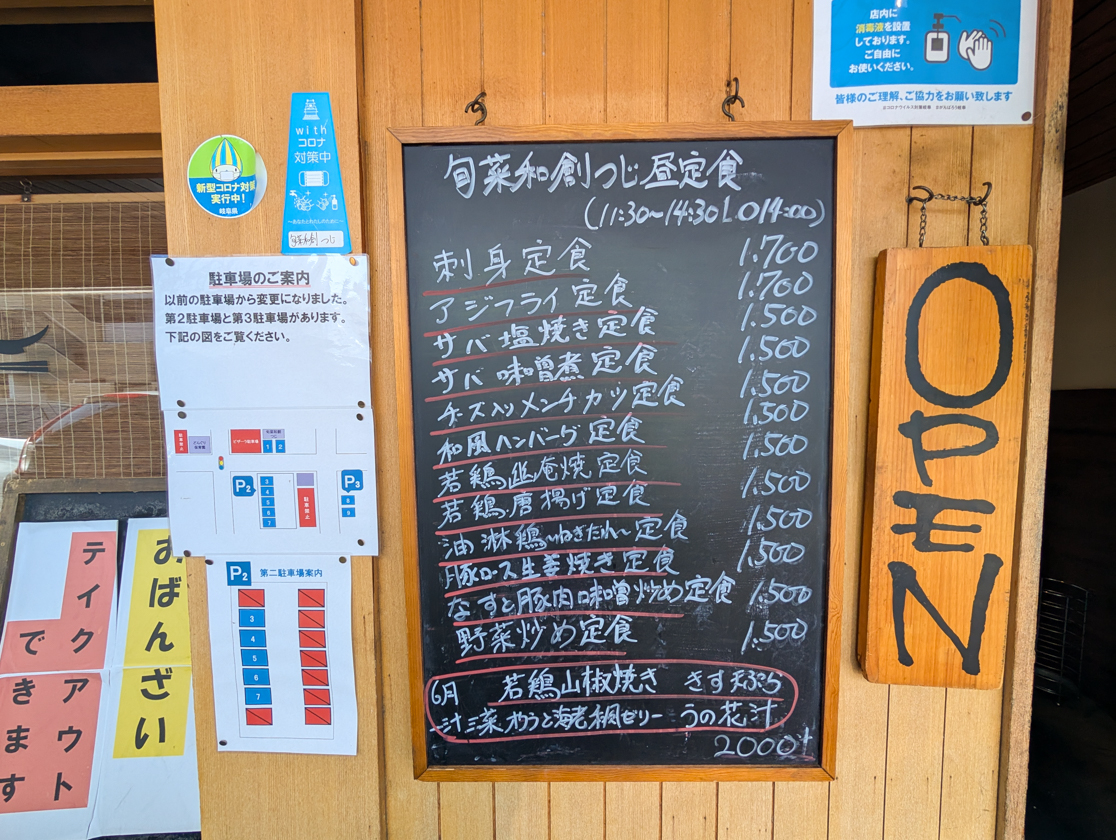 店内に
消毒液を設置
しております。
ご自由に
お使いください。
皆様のご理解、ご協力をお願い致します
with
コロナ
対策中
新型コロナ対策
実行中!
岐阜県
旬菜和創つじ
駐車場のご案内
以前の駐車場から変更になりました。
第2駐車場と第3駐車場があります。
下記の図をご覧ください。
1 2
P2
3
4
5
6
7
駐車禁止
P3
8
9
P2 第二駐車場案内
3
4
5
6
7
おばんざい
テイクアウト
できます
旬菜和創つじ昼定食
(11:30~14:30L.O14:00)
刺身定食 1.700
アジフライ定食 1.700
サバ塩焼き定食 1.500
サバ味噌煮定食 1.500
チーズ入りメンチカツ定食 1.500
和風ハンバーグ定食 1.500
若鶏幽庵焼定食 1.500
若鶏唐揚げ定食 1.500
油淋鶏~ねぎだれ~定食 1.500
豚ロース生姜焼き定食 1.500
なすと豚肉味噌炒め定食 1.500
野菜炒め定食 1.500
6月 若鶏山椒焼き きす天ぷら
一汁三菜 オクラと海老桐ゼリー うの花 汁
2000
OPEN